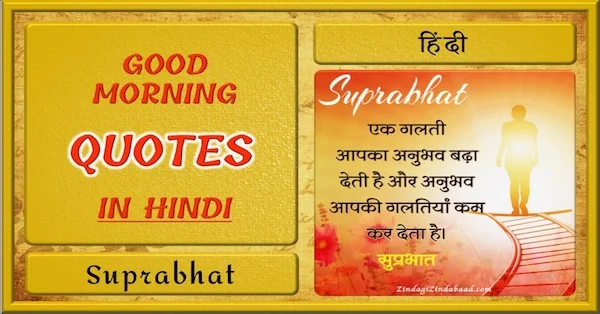 GOOD
MORNING
QUOTES
IN HINDI
Suprabhat
हिंदी
Suprabhat
एक गलती
आपका अनुभव बढ़ा
देती है और अनुभव
आपकी गलतियां कम
कर देता है।
सुप्रभात
ZindagiZindabaad.com